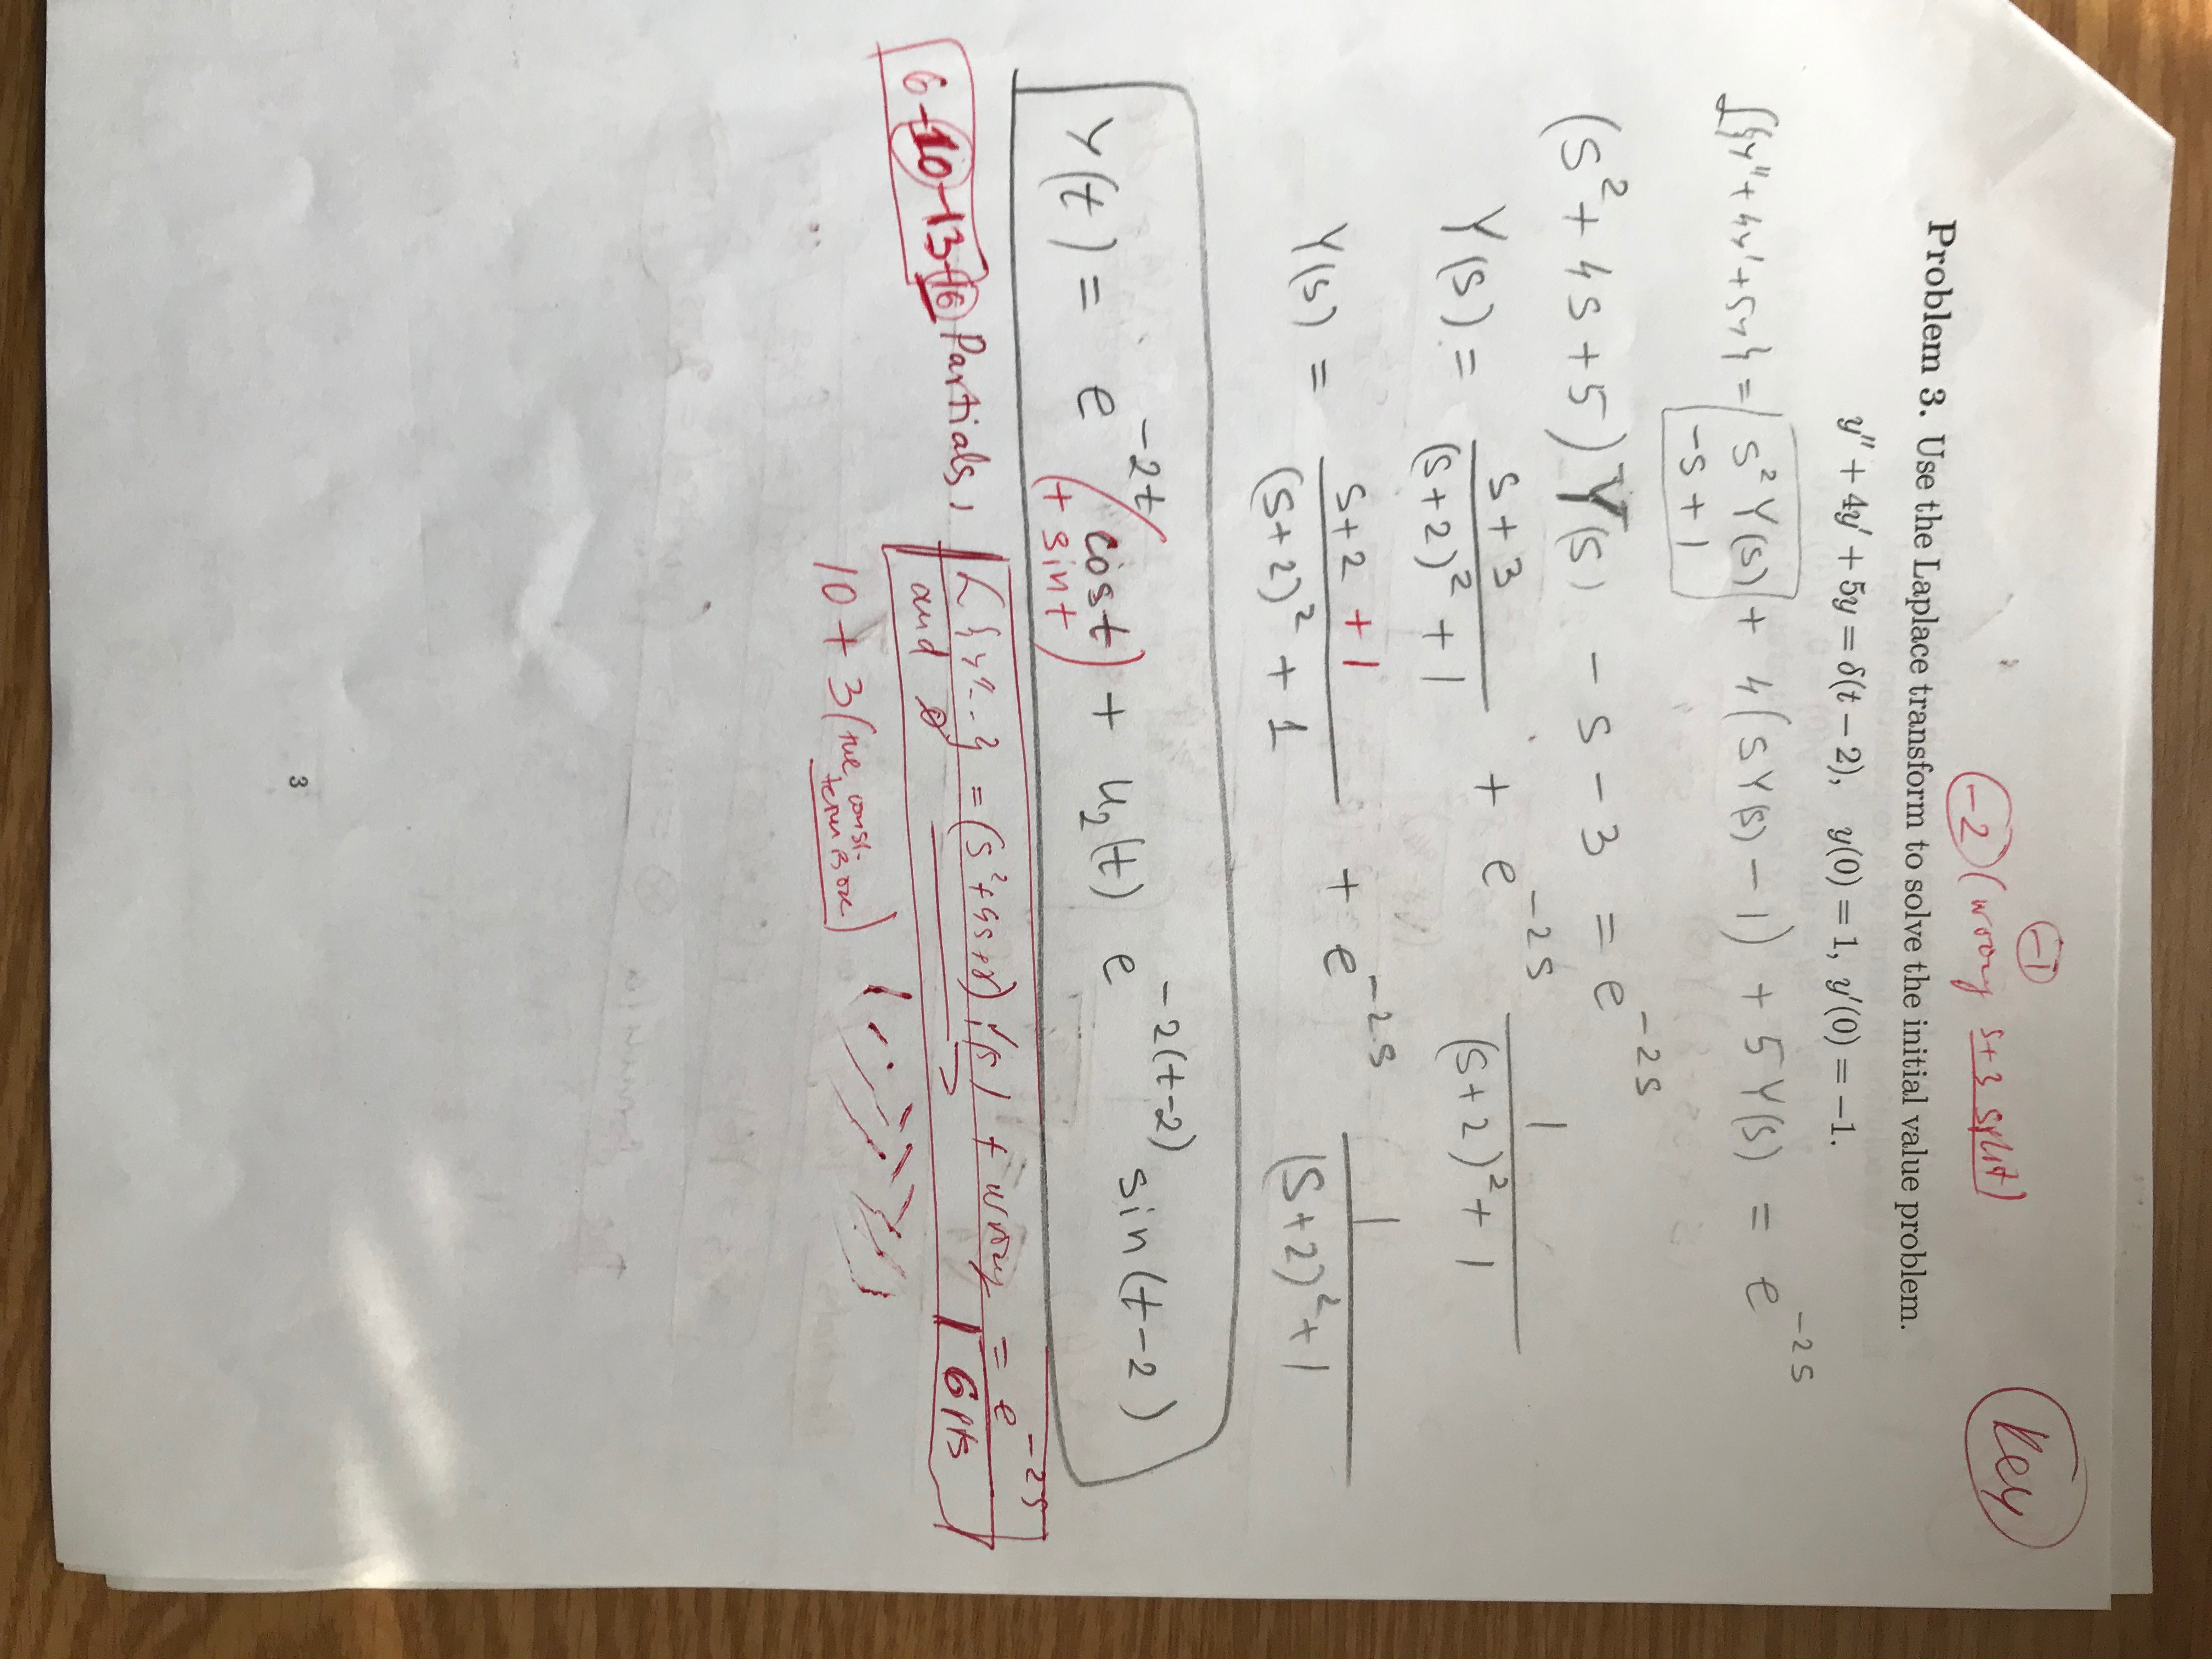 (-1)
(-2) (wrong s+3 split)
Key
Problem 3. Use the Laplace transform to solve the initial value problem.
y'' + 4y' + 5y = δ(t − 2), y(0) = 1, y'(0) = −1.
ℒ{y''+4y'+5y} = s²Y(s) + 4(sY(s) − 1) + 5Y(s) = e^{-2s}
-s+1
(s² + 4s + 5) Y(s) − s − 3 = e^{-2s}
Y(s) = \frac{s+3}{(s+2)²+1} + e^{-2s} \frac{1}{(s+2)²+1}
Y(s) = \frac{s+2+1}{(s+2)²+1} + e^{-2s} \frac{1}{(s+2)²+1}
y(t) = e^{-2t} (cost) + u₂(t) e^{-2(t-2)} sin(t-2)
+ sint)
6-10-13-16 Partials,
L{y''...} = (s²+4s+5) Y(s) + wrong = e^{-2s}
and
6 pts
10 + 3 (the const. term is ok)
3